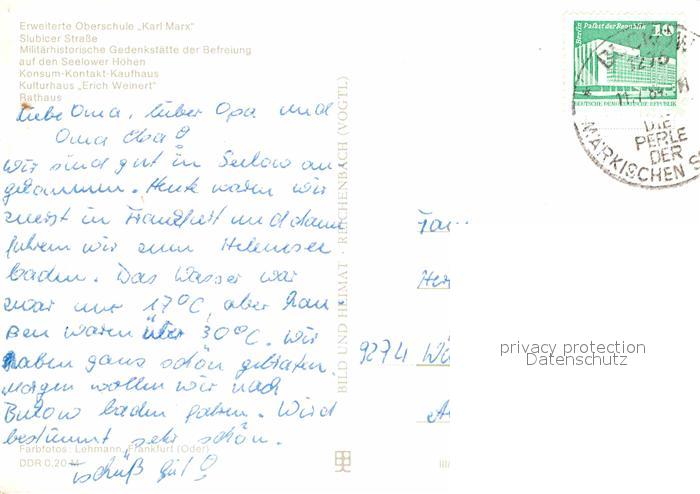 Erweiterte Oberschule „Karl Marx"
Slubicer Straße
Militärhistorische Gedenkstätte der Befreiung
auf den Seelower Höhen
Konsum-Kontakt-Kaufhaus
Kulturhaus „Erich Weinert"
Rathaus
Liebe Oma, lieber Opa und
Oma Elsa!
Wir sind gut in Seelow an
gekommen. Heute waren wir
zuerst in Frankfurt und dann
fuhren wir zum Helensee
baden. Das Wasser war
zwar nur 17°C, aber drau
ßen waren über 30°C. Wir
haben ganz schön gebraten.
Morgen wollen wir nach
Bukow baden fahren. Wird
bestimmt sehr schön.
Tschüß
Farbfotos: Lehmann, Frankfurt (Oder)
DDR 0,20 M
BILD UND HEIMAT · REICHENBACH (VOGTL)
Berlin Palast der Republik
10
DEUTSCHE DEMOKRATISCHE REPUBLIK
DIE
PERLE
DER
MÄRKISCHEN S
Fam
Her
9274 Wü
privacy protection
Datenschutz
III/